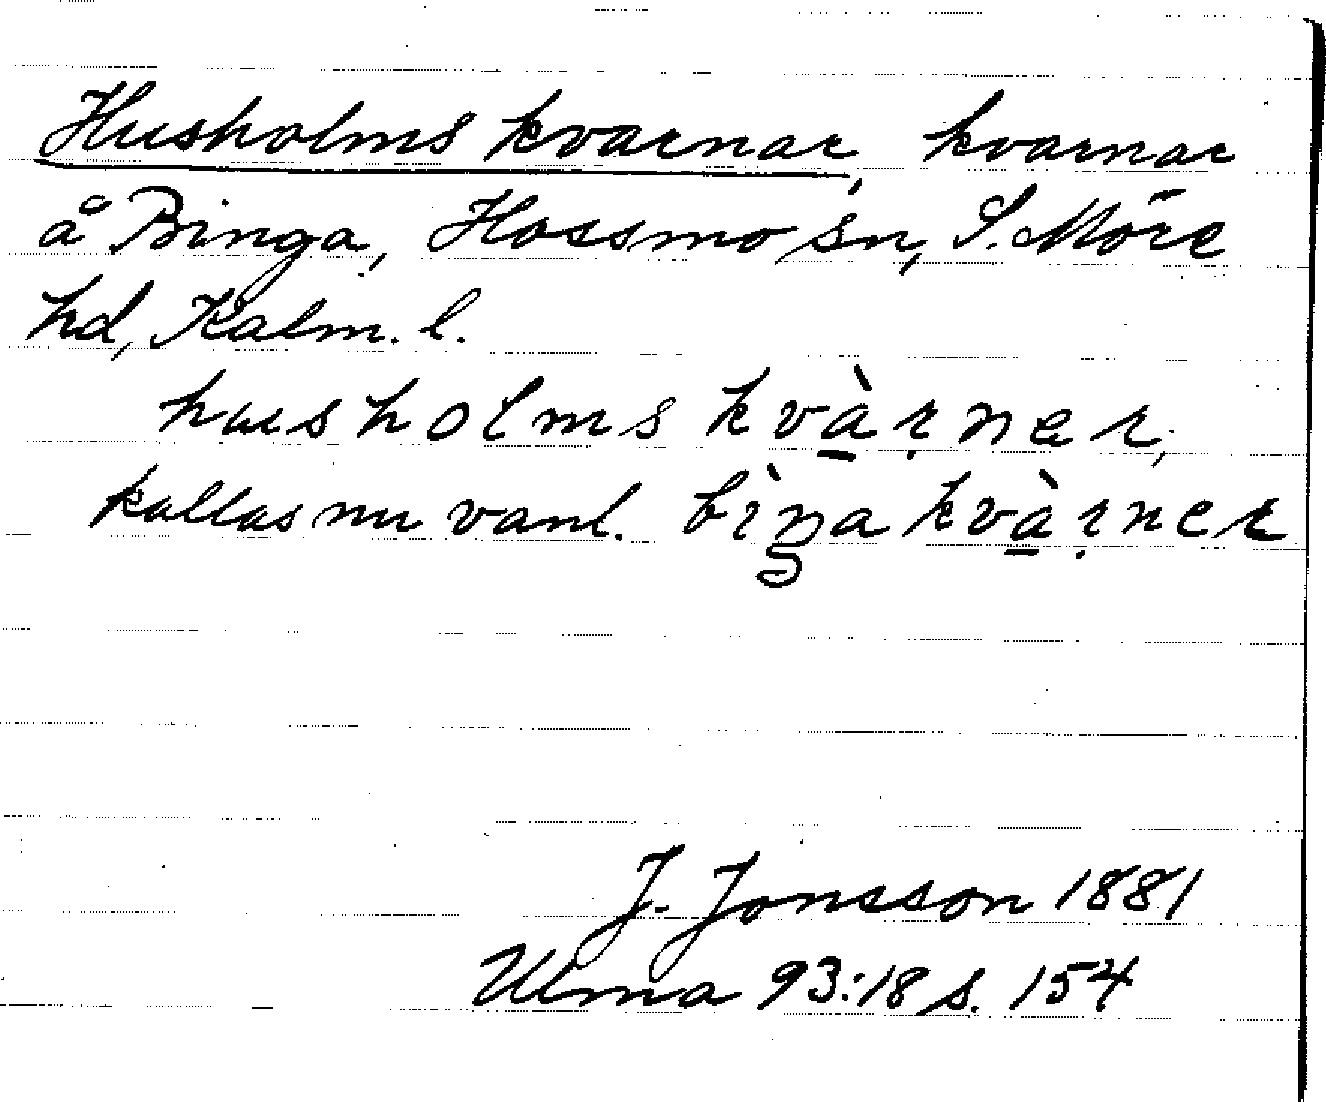 Husholms kvarnar, kvarnar
å Binga, Hossmo sn, S. Möre
hd, Kalm. l.
husholms kvà̱ṛner,
kallas nu vanl. bìŋa kvà̱ṛner
J. Jonsson 1881
Ulma 93:18 s. 154